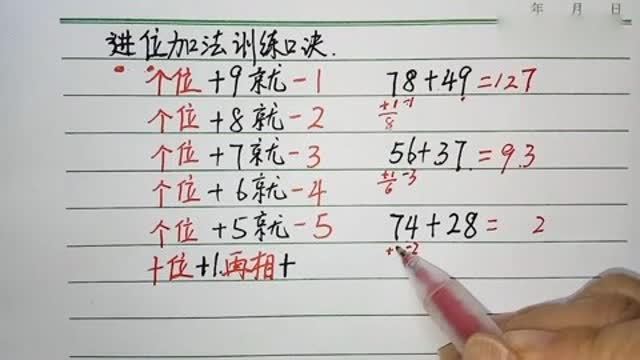 年 月 日
进位加法训练口决.
个位+9就-1
个位+8就-2
个位+7就-3
个位+6就-4
个位+5就-5
十位+1.再相+
78+49=127
+1 -1
8
56+37=93
+1 -3
6
74+28= 2
+ -2